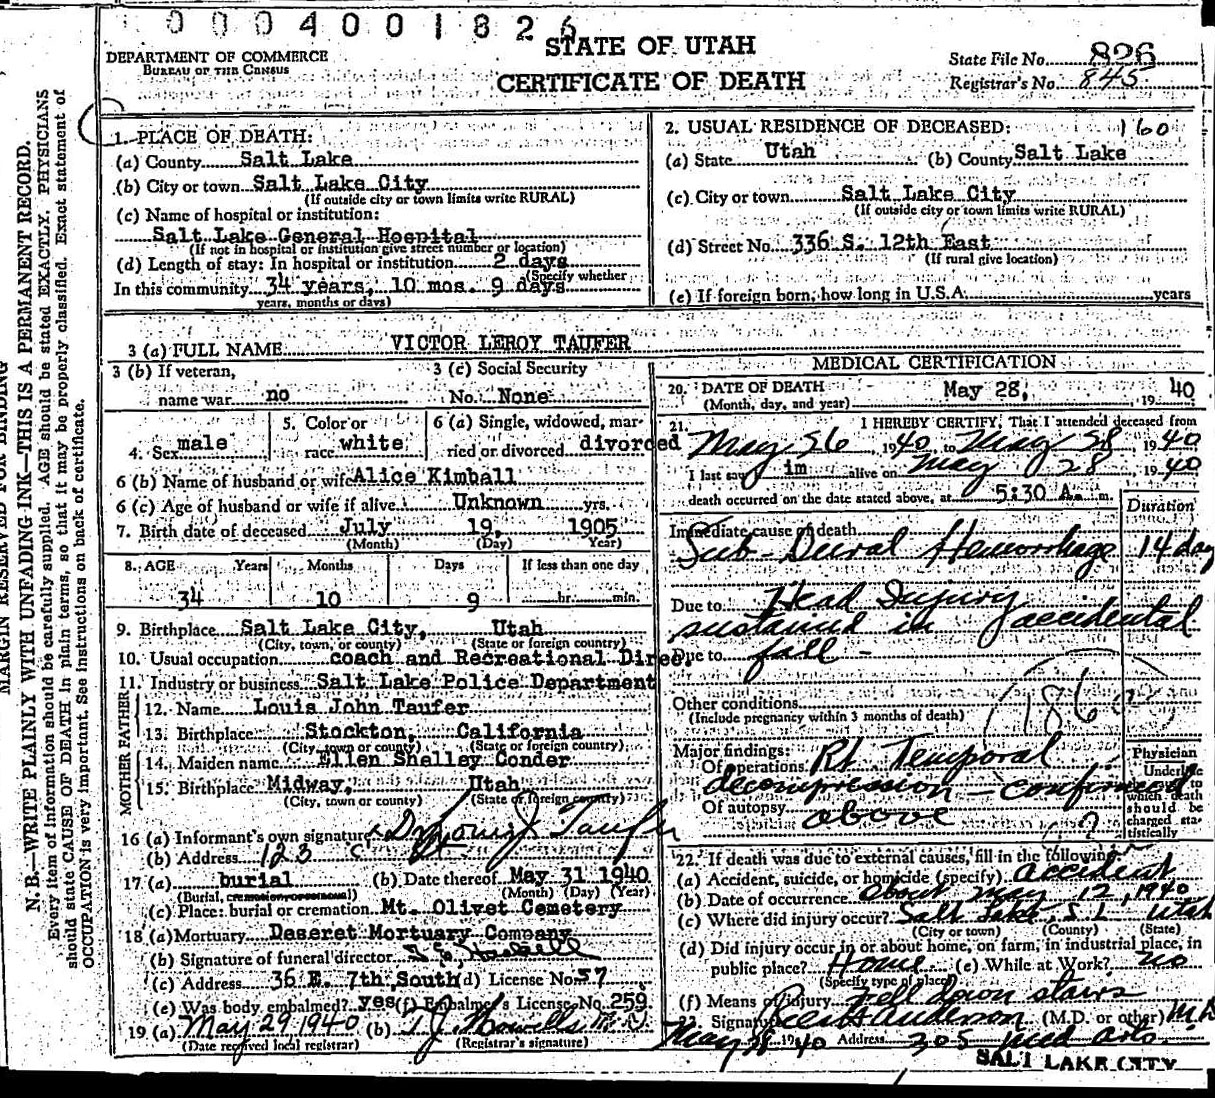 0004001826
DEPARTMENT OF COMMERCE
BUREAU OF THE CENSUS
STATE OF UTAH
CERTIFICATE OF DEATH
State File No. 826
Registrar's No. 845
MARGIN RESERVED FOR BINDING
N. B.—WRITE PLAINLY WITH UNFADING INK—THIS IS A PERMANENT RECORD.
Every item of information should be carefully supplied. AGE should be stated EXACTLY. PHYSICIANS
should state CAUSE OF DEATH in plain terms, so that it may be properly classified. Exact statement of
OCCUPATION is very important. See instructions on back of certificate.
1. PLACE OF DEATH:
(a) County Salt Lake
(b) City or town Salt Lake City
(If outside city or town limits write RURAL)
(c) Name of hospital or institution:
Salt Lake General Hospital
(If not in hospital or institution give street number or location)
(d) Length of stay: In hospital or institution 2 days
(Specify whether
In this community 34 years, 10 mos. 9 days
years, months or days)
2. USUAL RESIDENCE OF DECEASED: 160
(a) State Utah (b) County Salt Lake
(c) City or town Salt Lake City
(If outside city or town limits write RURAL)
(d) Street No. 336 S. 12th East
(If rural give location)
(e) If foreign born, how long in U.S.A. years
3 (a) FULL NAME VICTOR LEROY TAUFER
3 (b) If veteran, name war no
3 (c) Social Security No. None
4. Sex male
5. Color or race white
6 (a) Single, widowed, married or divorced divorced
6 (b) Name of husband or wife Alice Kimball
6 (c) Age of husband or wife if alive Unknown yrs.
7. Birth date of deceased July 19, 1905
(Month) (Day) Year)
8. AGE Years Months Days If less than one day
34 10 9 hr. min.
9. Birthplace Salt Lake City, Utah
(City, town, or county) (State or foreign country)
10. Usual occupation coach and Recreational Direc
11. Industry or business Salt Lake Police Department
FATHER
12. Name Louis John Taufer
13. Birthplace Stockton, California
(City, town or county) (State or foreign country)
MOTHER
14. Maiden name Ellen Shelley Conder
15. Birthplace Midway, Utah
(City, town or county) (State or foreign country)
16 (a) Informant's own signature Dr Louis J Taufer
(b) Address 123
17 (a) burial (b) Date thereof May 31 1940
(Burial, cremation or removal) (Month) (Day) (Year)
(c) Place: burial or cremation Mt. Olivet Cemetery
18 (a) Mortuary Deseret Mortuary Company
(b) Signature of funeral director
(c) Address 36 E. 7th South (d) License No. 57
(e) Was body embalmed? yes (f) Embalmer's License No. 259
19 (a) May 29 1940 (b) T. J. Howells M.D.
(Date received local registrar) (Registrar's signature)
MEDICAL CERTIFICATION
20. DATE OF DEATH May 28, 19 40
(Month, day, and year)
21. I HEREBY CERTIFY, That I attended deceased from
May 26, 1940 to May 28, 1940
I last saw im alive on May 28 1940
death occurred on the date stated above, at 5:30 A. m.
Duration
Immediate cause of death
Sub-Dural Hemorrhage 14 day
Due to Head Injury
sustained in accidental
Due to fall
Other conditions
(Include pregnancy within 3 months of death)
186
Major findings:
Of operations Rt Temporal
decompression — confirmed
Of autopsy above
Physician
Underline
which death
should be
charged sta-
tistically
22. If death was due to external causes, fill in the following:
(a) Accident, suicide, or homicide (specify) accident
(b) Date of occurrence about May 12, 1940
(c) Where did injury occur? Salt Lake, S L Utah
(City or town) (County) (State)
(d) Did injury occur in or about home, on farm, in industrial place, in
public place? Home (e) While at Work? no
(Specify type of place)
(f) Means of injury fell down stairs
23. Signature Anderson (M.D. or other) M.D
May 28 1940 Address 305 Med Arts
SALT LAKE CITY